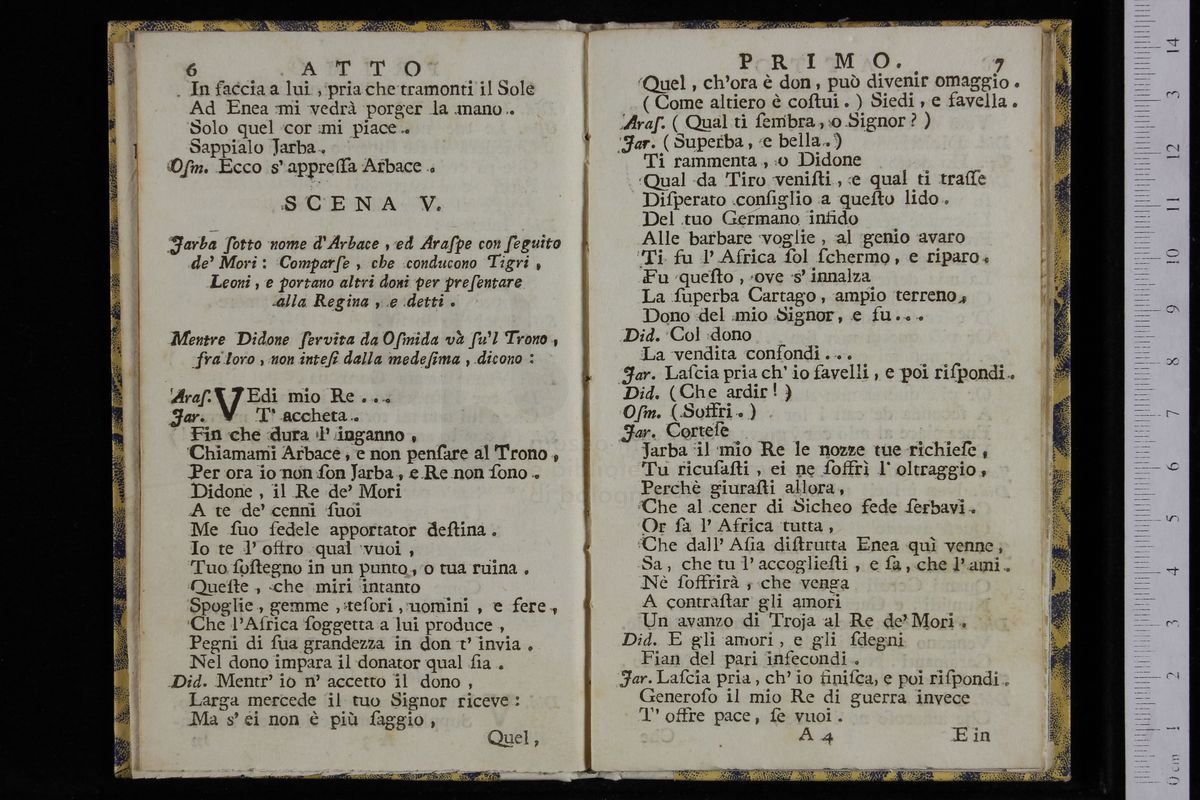 6 A T T O
In faccia a lui, pria che tramonti il Sole
Ad Enea mi vedrà porger la mano.
Solo quel cor mi piace.
Sappialo Jarba.
Oſm. Ecco s' appreſſa Arbace.
S C E N A V.
Jarba ſotto nome d'Arbace, ed Araſpe con ſeguito
de' Mori: Comparſe, che conducono Tigri,
Leoni, e portano altri doni per preſentare
alla Regina, e detti.
Mentre Didone ſervita da Oſmida và ſu'l Trono,
fra loro, non inteſi dalla medeſima, dicono:
Araſ. VEdi mio Re...
Jar. T' accheta.
Fin che dura l' inganno,
Chiamami Arbace, e non penſare al Trono,
Per ora io non ſon Jarba, e Re non ſono.
Didone, il Re de' Mori
A te de' cenni ſuoi
Me ſuo fedele apportator deſtina.
Io te l' offro qual vuoi,
Tuo ſoſtegno in un punto, o tua ruina.
Queſte, che miri intanto
Spoglie, gemme, teſori, uomini, e fere,
Che l'Africa ſoggetta a lui produce,
Pegni di ſua grandezza in don t' invia.
Nel dono impara il donator qual ſia.
Did. Mentr' io n' accetto il dono,
Larga mercede il tuo Signor riceve:
Ma s' ei non è più ſaggio,
Quel,
P R I M O. 7
Quel, ch'ora è don, può divenir omaggio.
(Come altiero è coſtui.) Siedi, e favella.
Araſ. (Qual ti ſembra, o Signor?)
Jar. (Superba, e bella.)
Ti rammenta, o Didone
Qual da Tiro veniſti, e qual ti traſſe
Diſperato conſiglio a queſto lido.
Del tuo Germano infido
Alle barbare voglie, al genio avaro
Ti fu l' Africa ſol ſchermo, e riparo.
Fu queſto, ove s' innalza
La ſuperba Cartago, ampio terreno,
Dono del mio Signor, e fu...
Did. Col dono
La vendita confondi...
Jar. Laſcia pria ch' io favelli, e poi riſpondi.
Did. (Che ardir!)
Oſm. (Soffri.)
Jar. Corteſe
Jarba il mio Re le nozze tue richieſe,
Tu ricuſaſti, ei ne ſoffrì l' oltraggio,
Perchè giuraſti allora,
Che al cener di Sicheo fede ſerbavi.
Or ſa l' Africa tutta,
Che dall' Aſia diſtrutta Enea quì venne,
Sa, che tu l' accoglieſti, e ſa, che l' ami.
Nè ſoffrirà, che venga
A contraſtar gli amori
Un avanzo di Troja al Re de' Mori.
Did. E gli amori, e gli ſdegni
Fian del pari infecondi.
Jar. Laſcia pria, ch' io finiſca, e poi riſpondi.
Generoſo il mio Re di guerra invece
T' offre pace, ſe vuoi.
A 4 E in